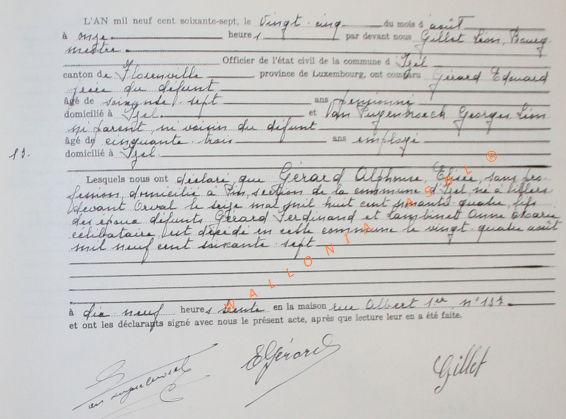 L'AN mil neuf cent soixante-sept, le vingt-cinq du mois d'août
à onze heures par devant nous Gillet Léon, Bourg
mestre Officier de l'état civil de la commune d'Izel
canton de Florenville province de Luxembourg, ont comparu Gérard Edouard
frère du défunt
âgé de soixante sept ans pensionné
domicilié à Izel et Georges Léon
ni parent, ni voisin du défunt
âgé de cinquante trois ans employé
domicilié à Izel
13.
Lesquels nous ont déclaré que Gérard Alphonse, Elisée, sans pro
fession, domicilié à Pin, section de la commune d'Izel né à Villers
devant Orval le seize mai mil huit cent nonante quatre, fils
des époux défunts Gérard Ferdinand et Lambinet Anne Marie
célibataire, est décédé en cette commune le vingt-quatre août
mil neuf cent soixante sept
à dix neuf heures trente en la maison rue Albert 1er n° 137
et ont les déclarants signé avec nous le présent acte, après que lecture leur en a été faite.
EGérard
Gillet
WALLONIA ASBL ®